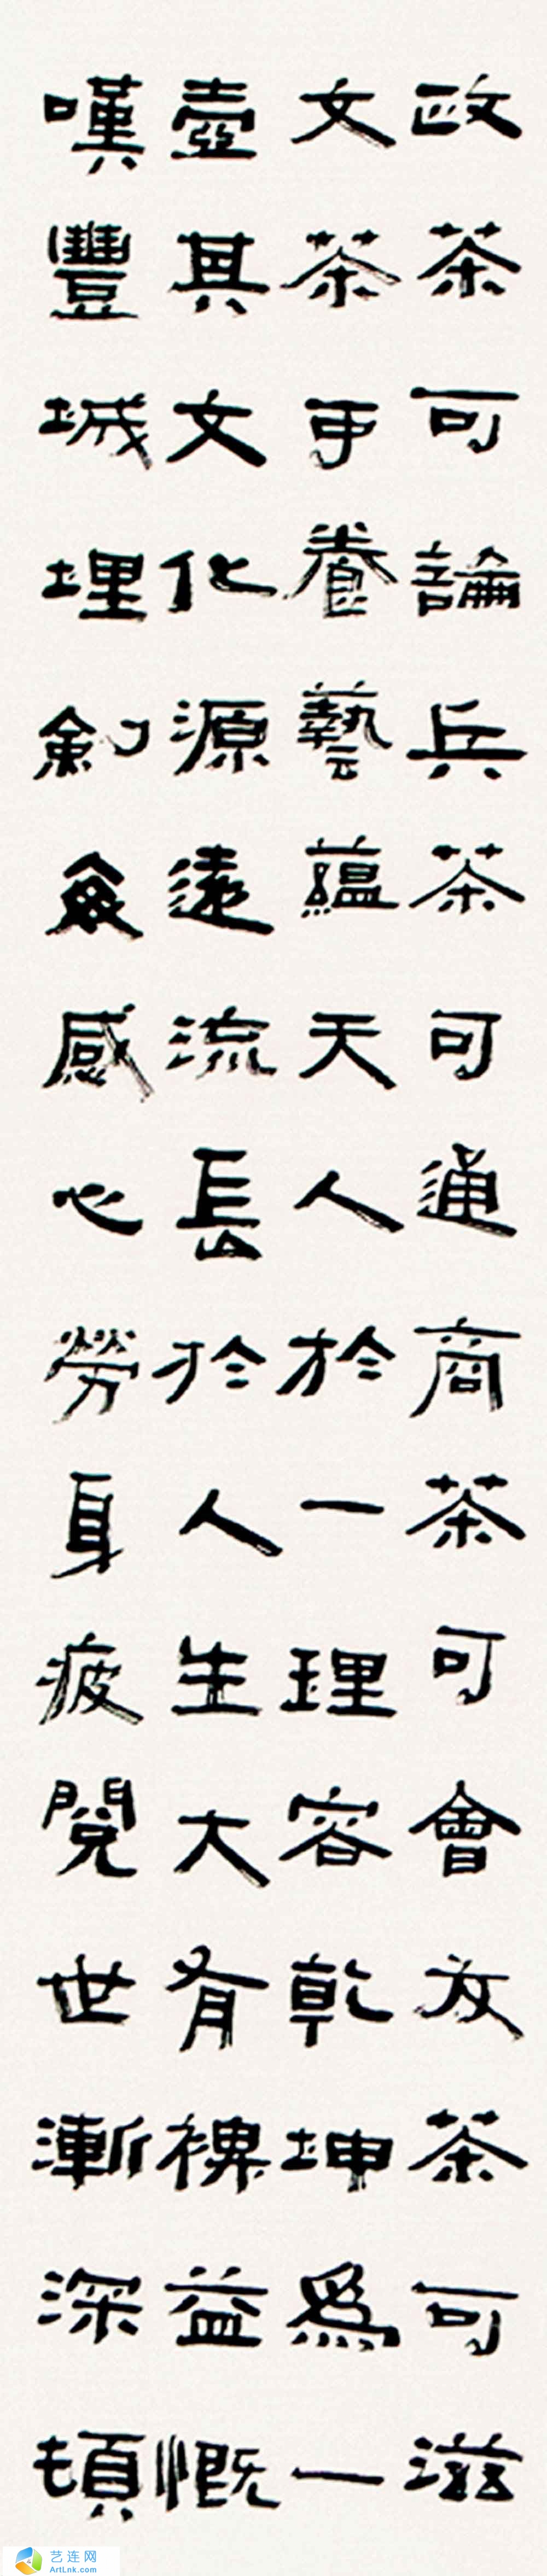 政茶可論兵茶可通商茶可會友茶可滋
文茶乎養藝蘊天人於一理容乾坤為一
壺其文化源遠流長於人生大有裨益慨
嘆豐城埋劍僉感心勞身疲閱世漸深頓
艺连网
ArtLnk.com